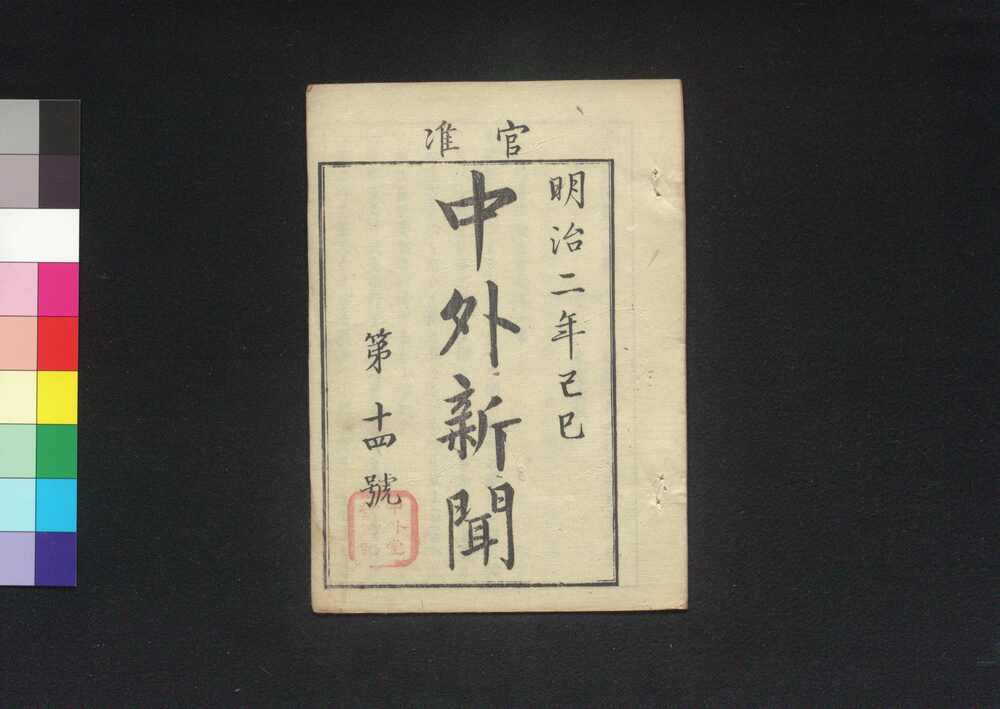 官准
明治二年己巳
中外新聞
第十四號